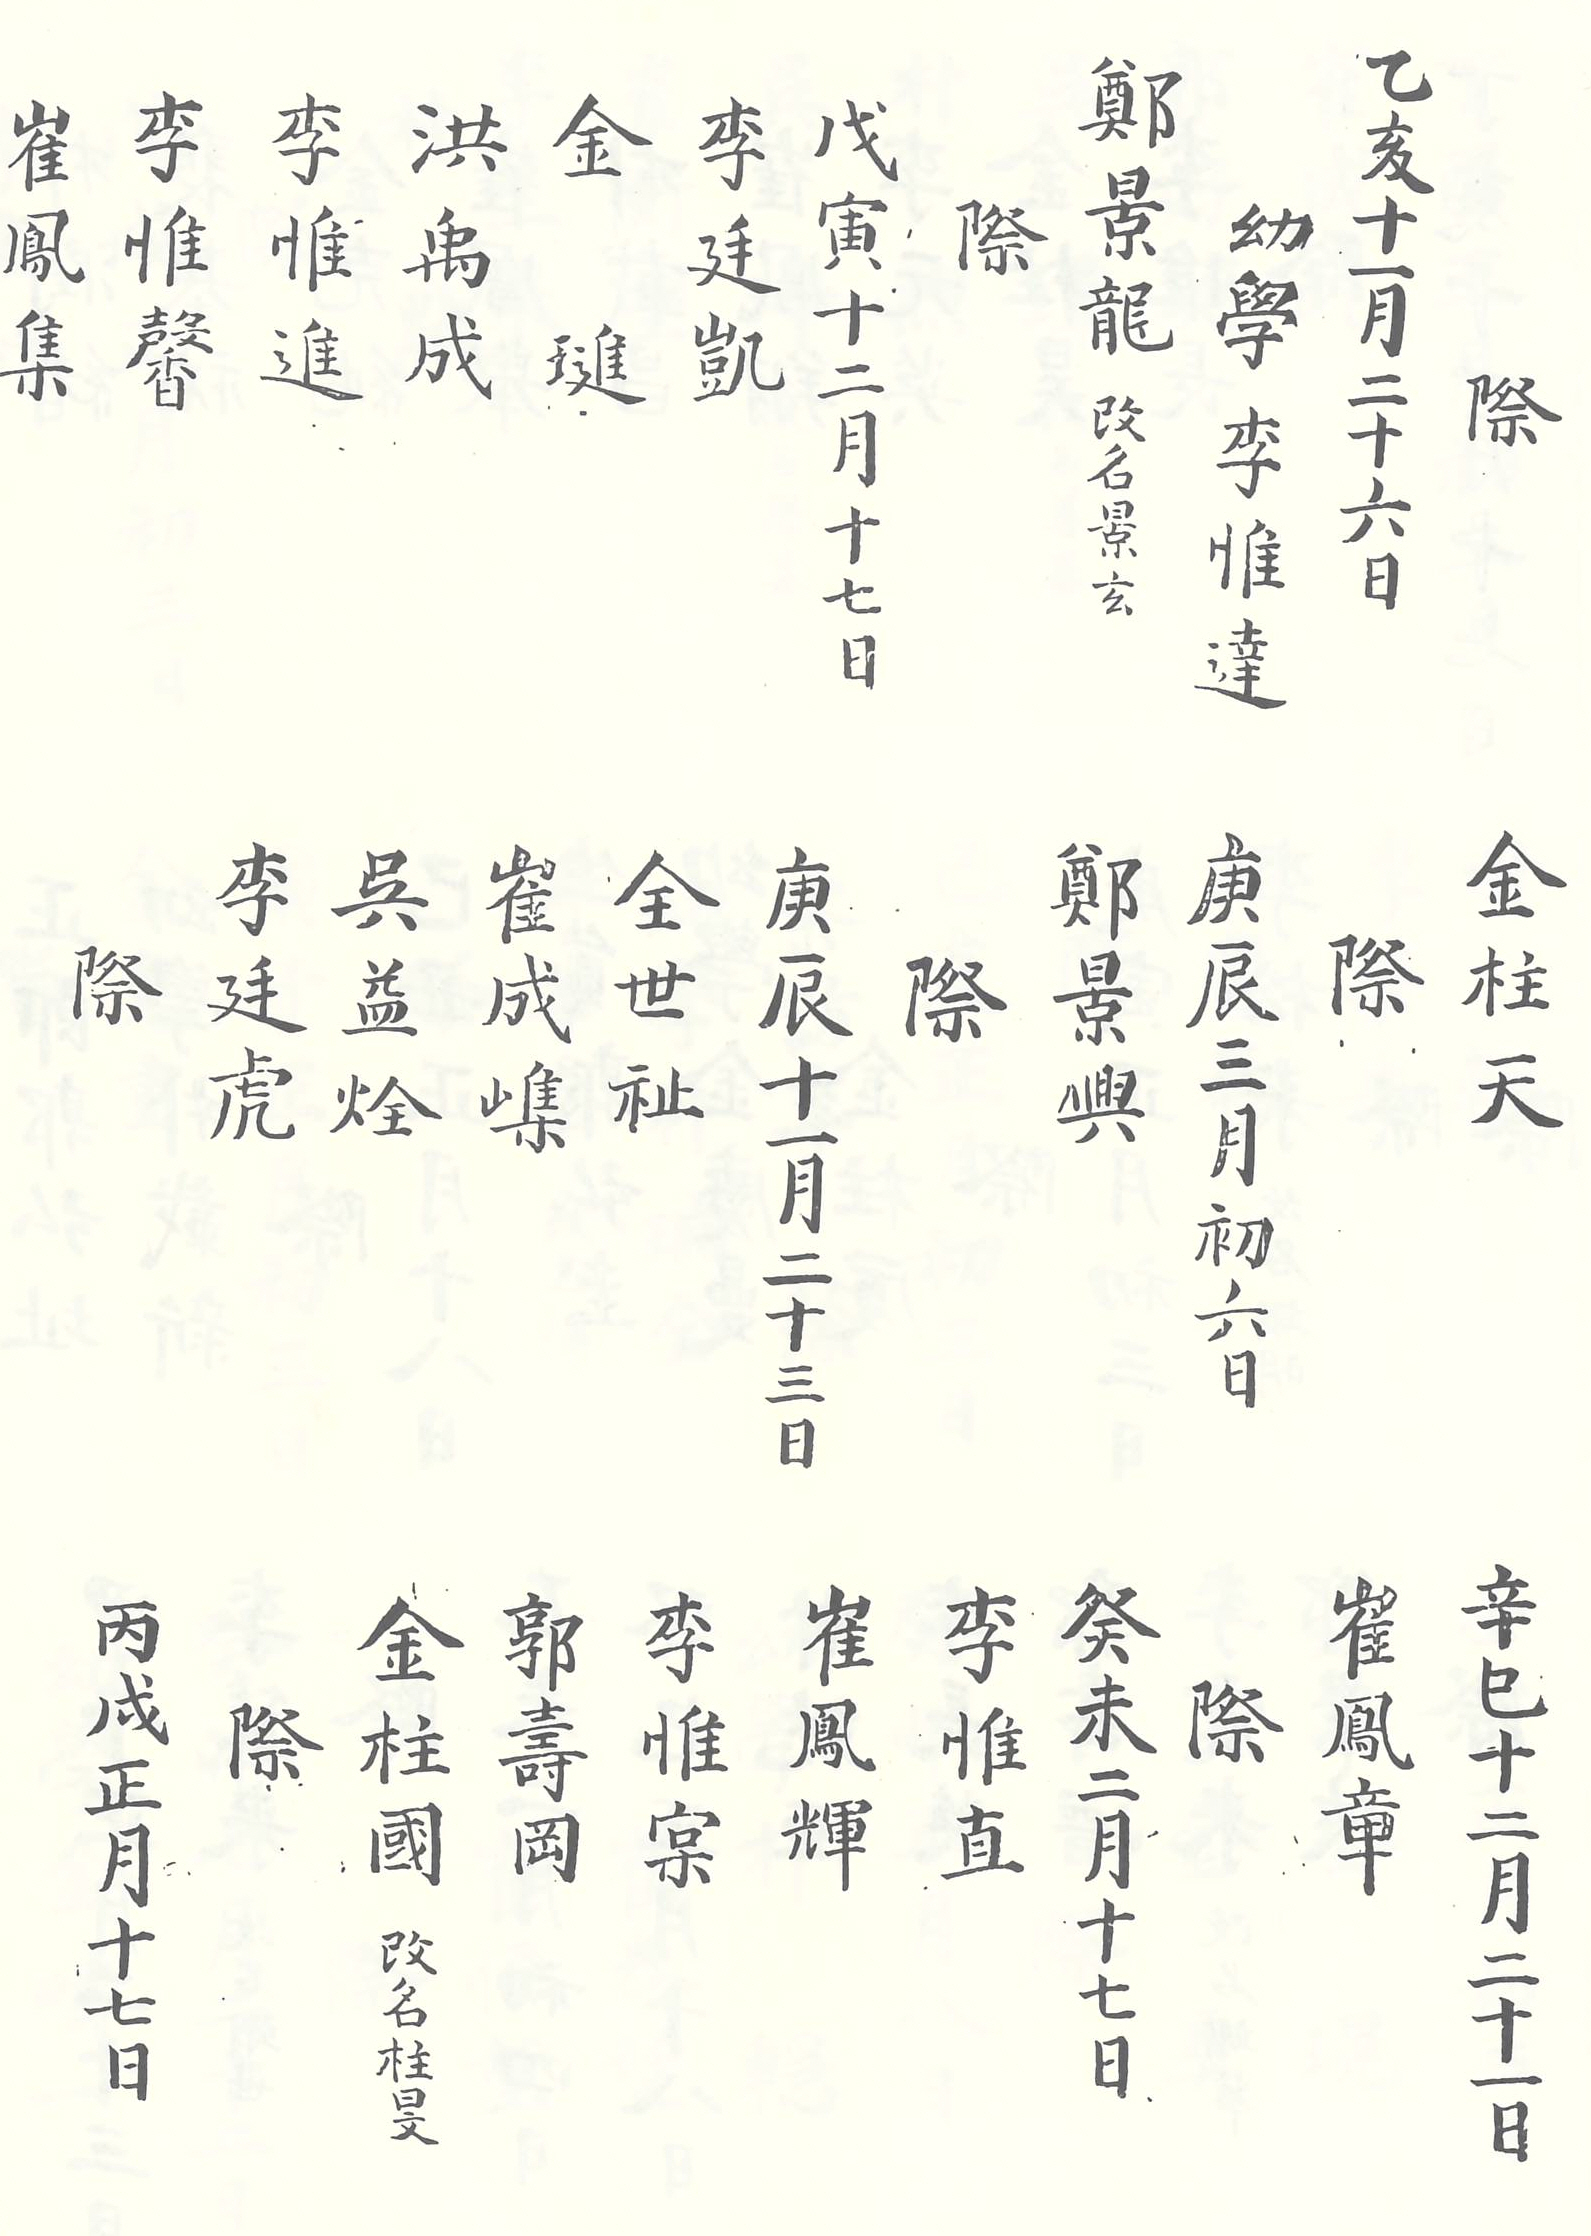 際
乙亥十一月二十六日
幼學 李惟達
鄭景龍 改名景玄
際
戊寅十二月十七日
李廷凱
金 璡
洪禹成
李惟進
李惟馨
崔鳳集
金柱天
際
庚辰三月初六日
鄭景興
際
庚辰十一月二十三日
全世祉
崔成㠍
吳益烇
李廷虎
際
辛巳十二月二十一日
崔鳳章
際
癸未二月十七日
李惟直
崔鳳輝
李惟寀
郭壽岡
金柱國 改名柱旻
際
丙戌正月十七日